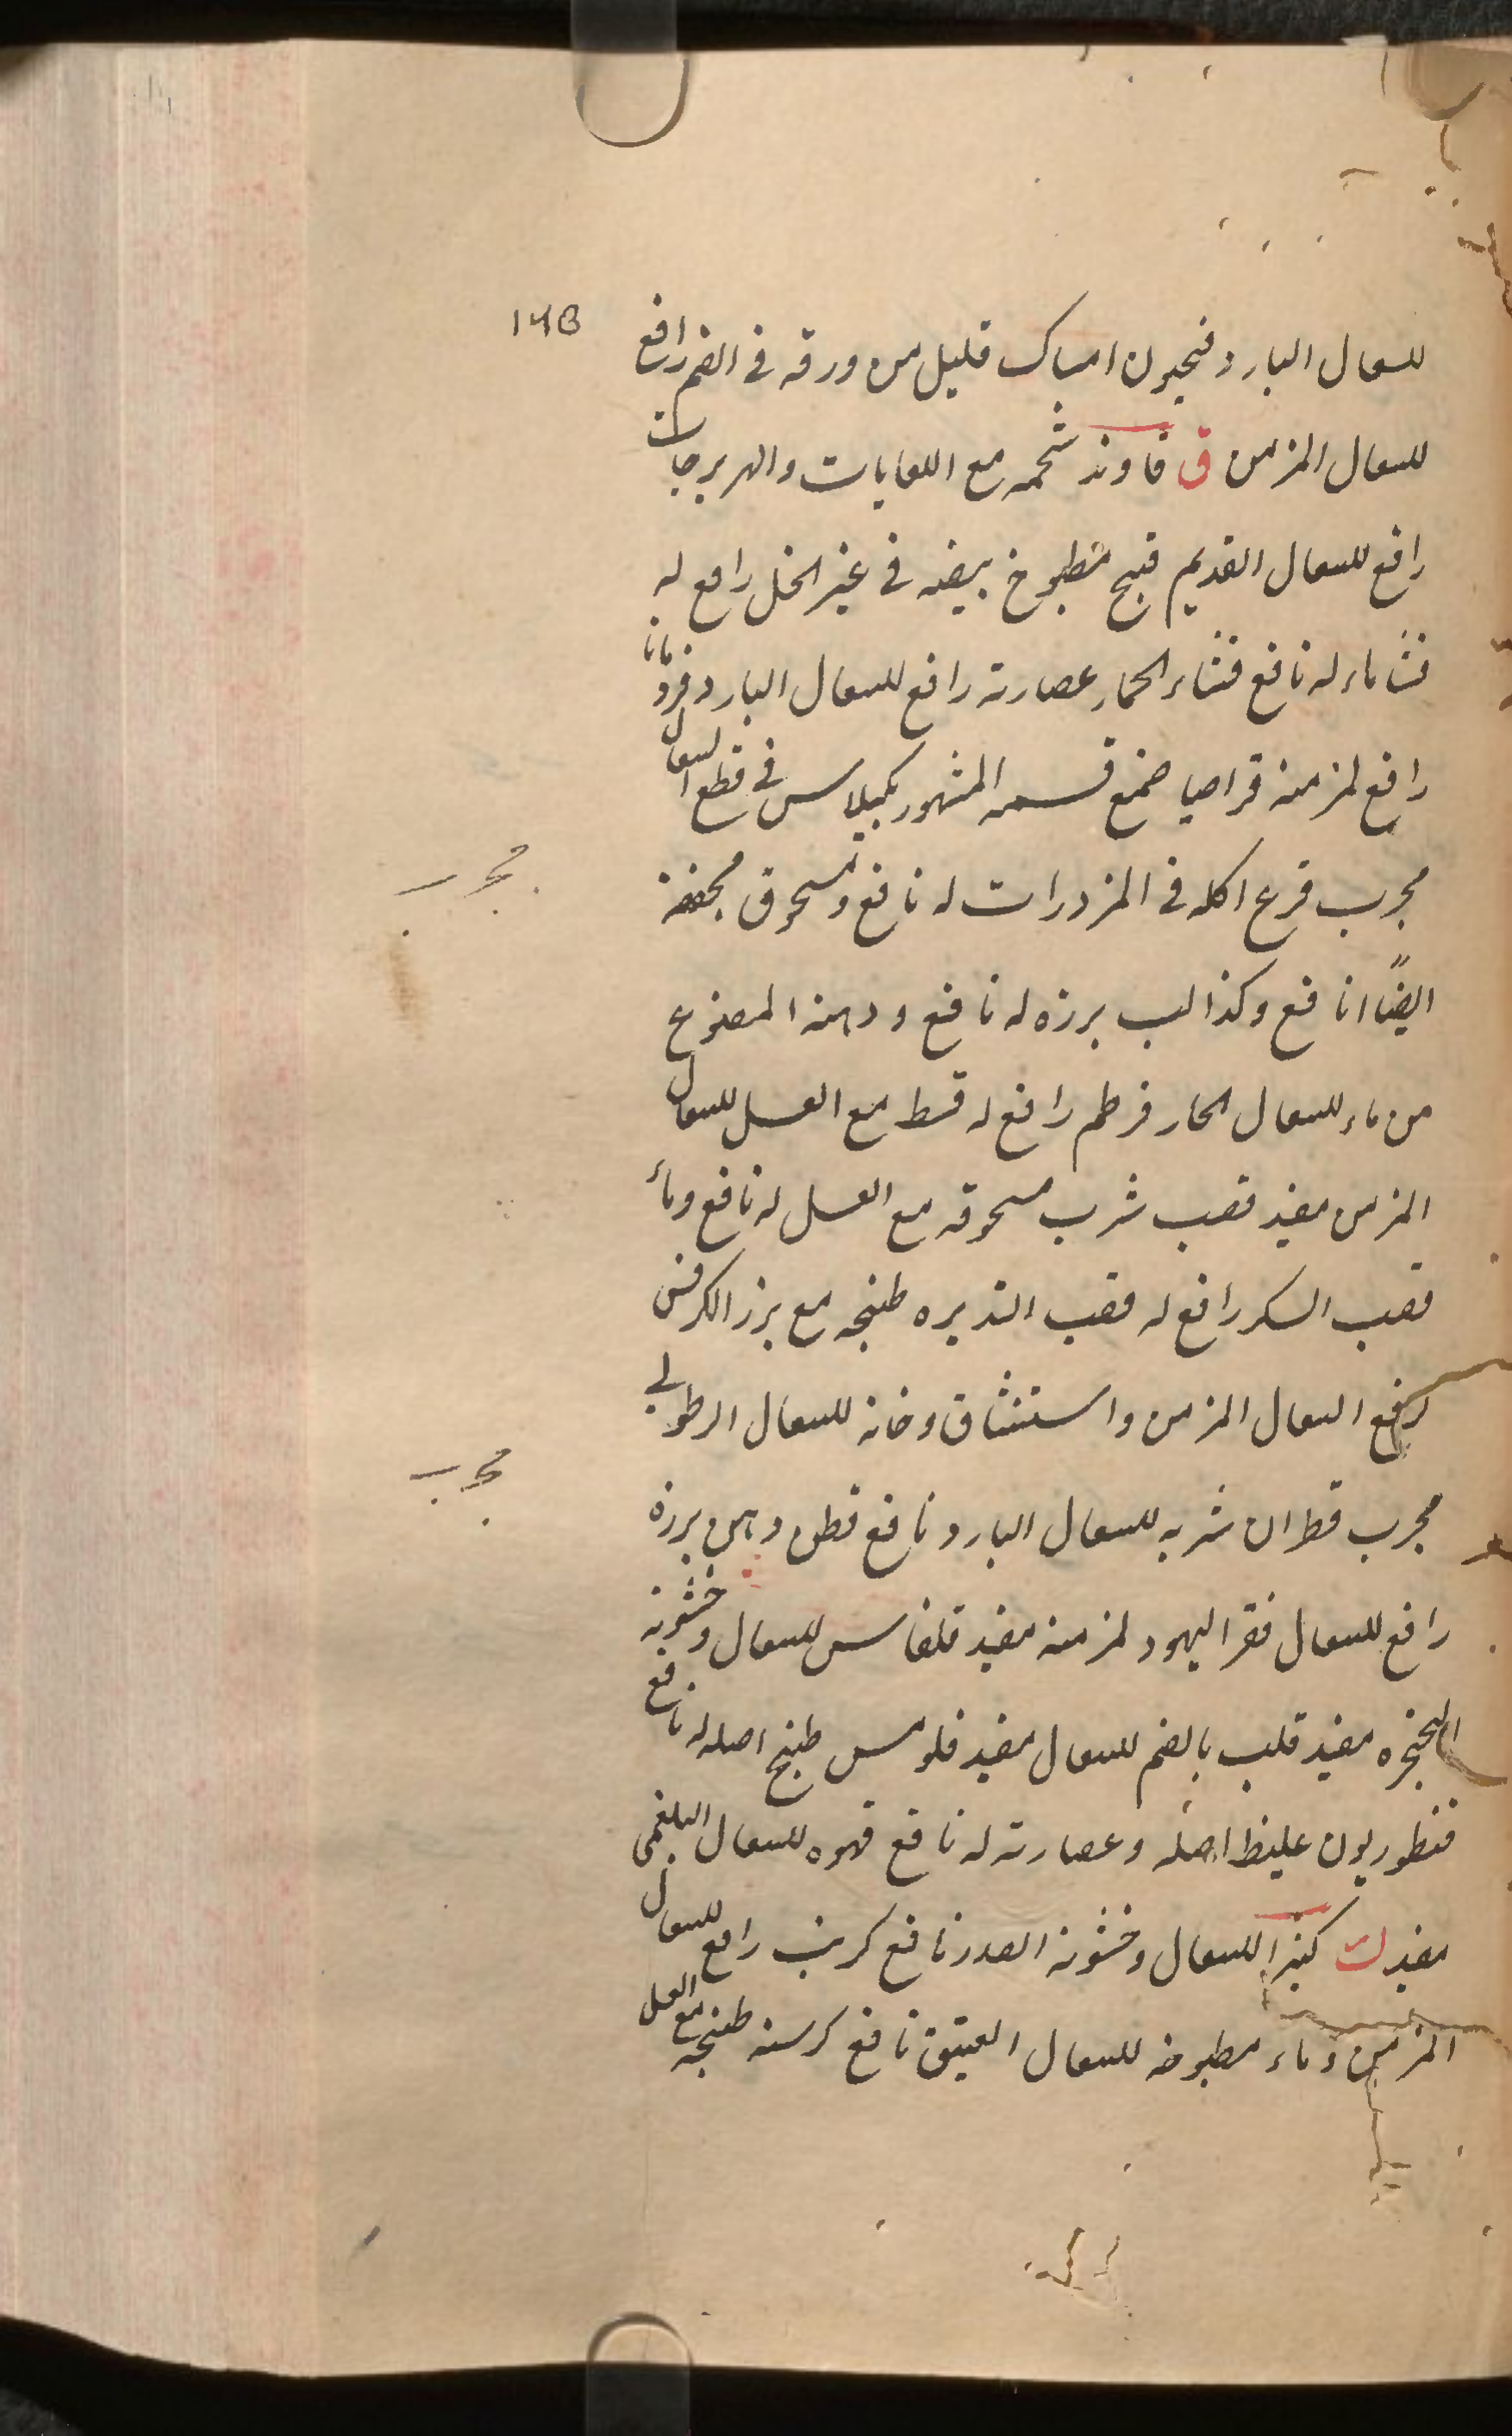 ١٦٥
للسعال البارد فنجيون امساك قليل من ورقه في الفم رافع
للسعال المزمن ق قاوند شحمه مع اللعابات والهربرجات
رافع للسعال القديم قبج مطبوخ بيضه في غير الخل رافع له
قثاء ماءه له نافع قثاء الحمار عصارته رافع للسعال البارد قردمانا
رافع لمزمنه قراصيا صمغ قسمه المشهور بكيلاس في قطع السعال
مجرب قرع اكله في المزورات له نافع ومسحوق مجففه
مجرب
ايضًا نافع وكذا لب برزه له نافع ودهنه المصنوع
من ماء للسعال الحار قرطم رافع له قسط مع العسل للسعال
المزمن مفيد قصب شرب مسحوقه مع العسل له نافع وماء
قصب السكر رافع له قصب الذريره طبخه مع برز الكرفس
لرفع السعال المزمن واستنشاق دخانه للسعال الرطوبي
مجرب قطران شربه للسعال البارد نافع قطن دهن برزه
مجرب
رافع للسعال قفر اليهود لمزمنه مفيد قلقاس للسعال وخشونة
الحنجره مفيد قلب بالضم للسعال مفيد قلومس طبخ اصله له نافع
قنطوريون غليظ اصله وعصارته له نافع قهوه للسعال البلغمي
مفيد ك كثيرا للسعال وخشونة الصدر نافع كرنب رافع للسعال
المزمن وماء مطبوخه للسعال العتيق نافع كرسنه طبخه مع العسل